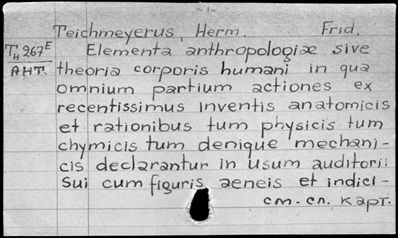 - 1 -
Teichmeyerus, Herm. Frid.
Tн 267ᴱ Elementa anthropologiæ sive
АНТ. theoria corporis humani in qua
omnium partium actiones ex
recentissimus inventis anatomicis
et rationibus tum physicis tum
chymicis tum denique mechani-
cis declarantur in usum auditorii
sui cum figuris aeneis et indici-
см. сл. карт.